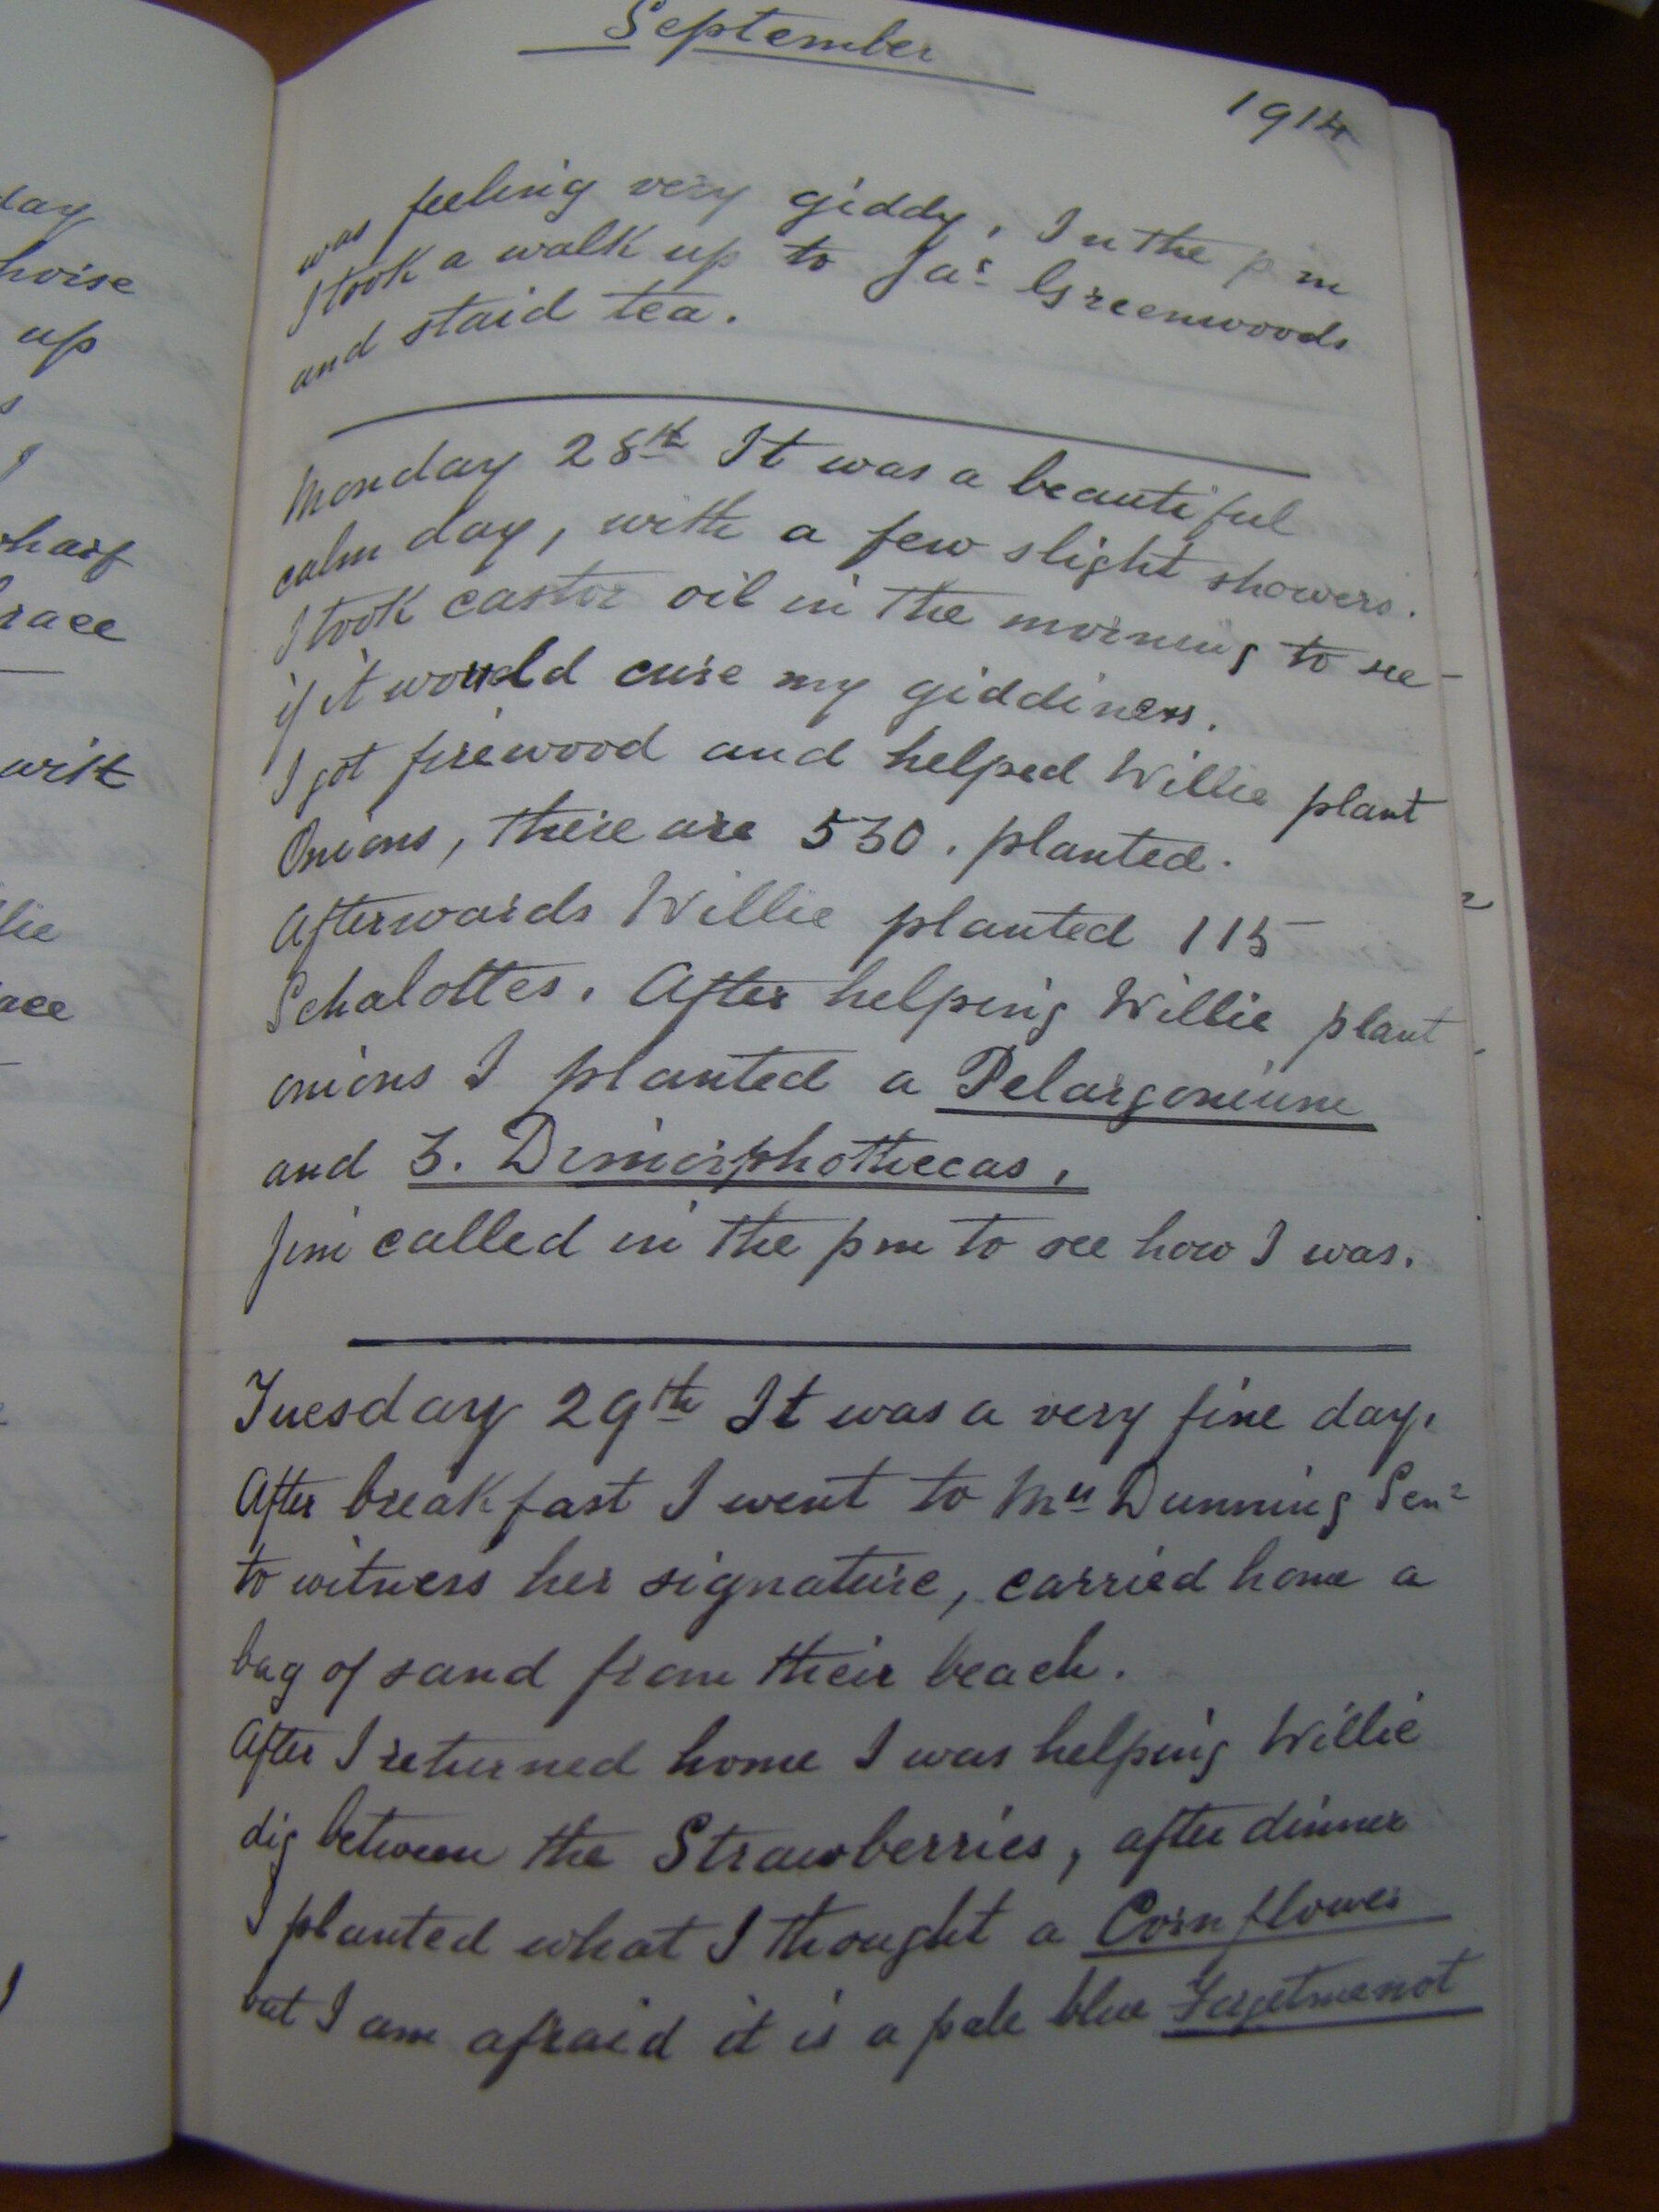 day
hoise
up
s
I
wharf
Grace
with
lie
ace
September
1914
was feeling very giddy, In the p m
I took a walk up to Jas Greenwoods
and staid tea.
Monday 28th It was a beautiful
calm day, with a few slight showers.
I took castor oil in the morning to see
if it would cure my giddiness.
I got firewood and helped Willie plant
Onions, there are 530. planted.
Afterwards Willie planted 115
Schalottes. After helping Willie plant
onions I planted a Pelargonium
and 3. Dimorphothecas.
Jim called in the pm to see how I was.
Tuesday 29th It was a very fine day.
After breakfast I went to Mrs Dunning Senr
to witness her signature, carried home a
bag of sand from their beach.
After I returned home I was helping Willie
dig between the Strawberries, after dinner
I planted what I thought a Cornflower
but I am afraid it is a pale blue Forgetmenot